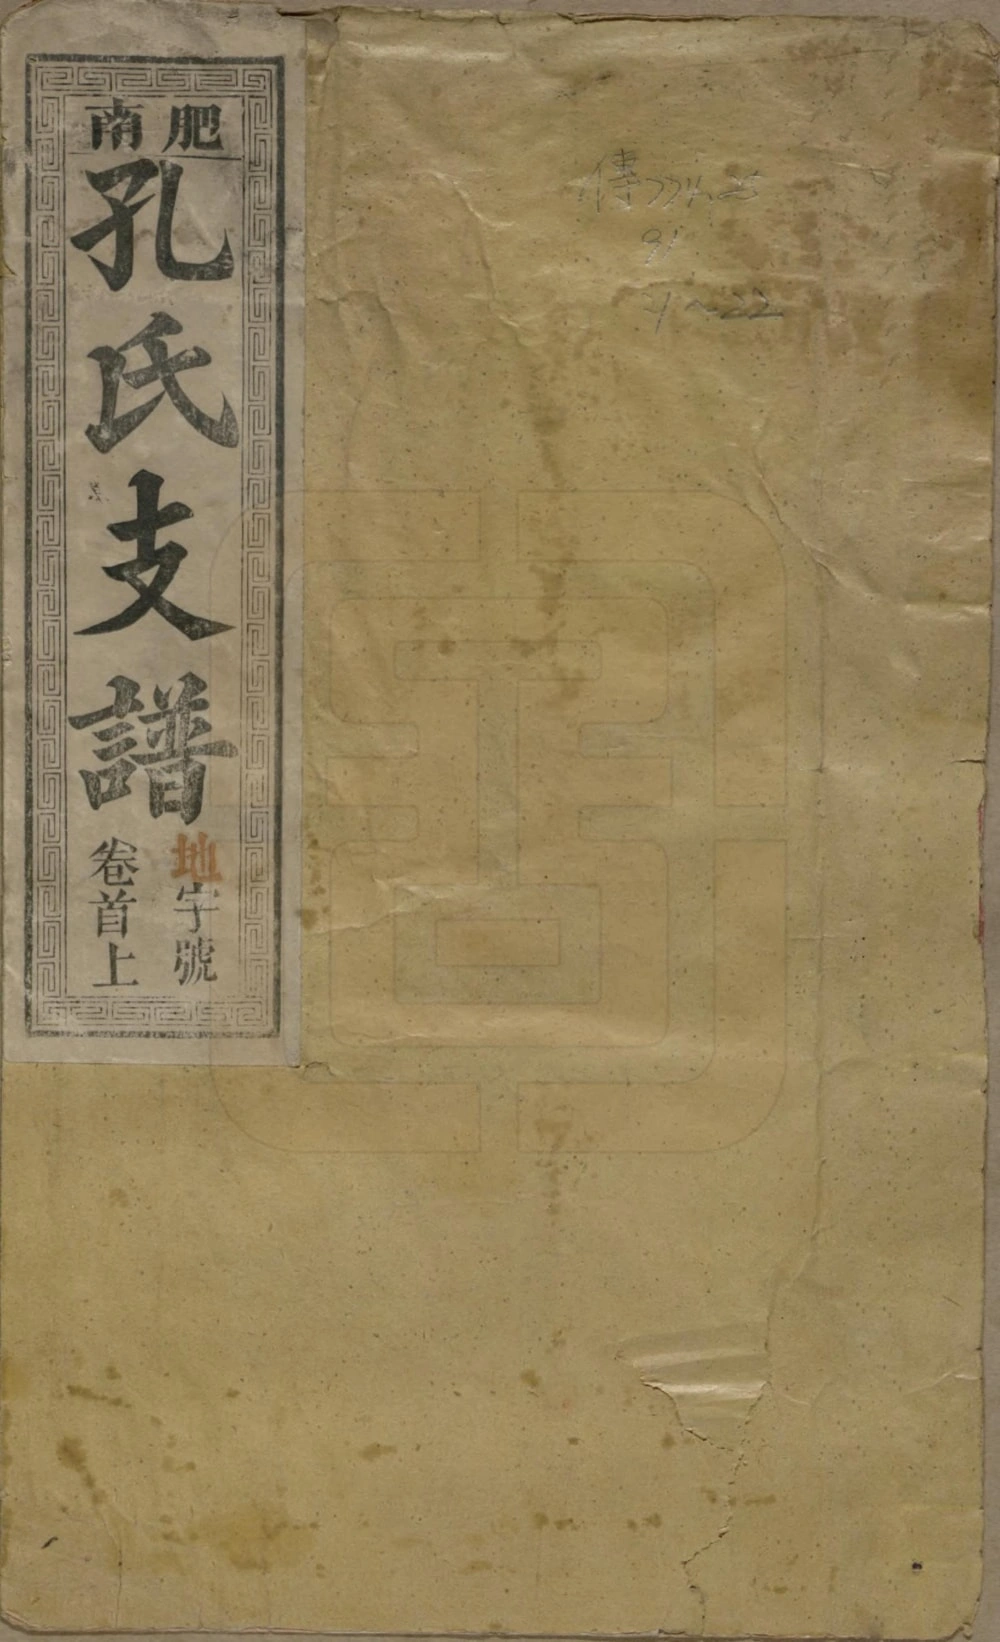 肥南
孔氏支譜
地字號
卷首上
傳774.25
91
4~22